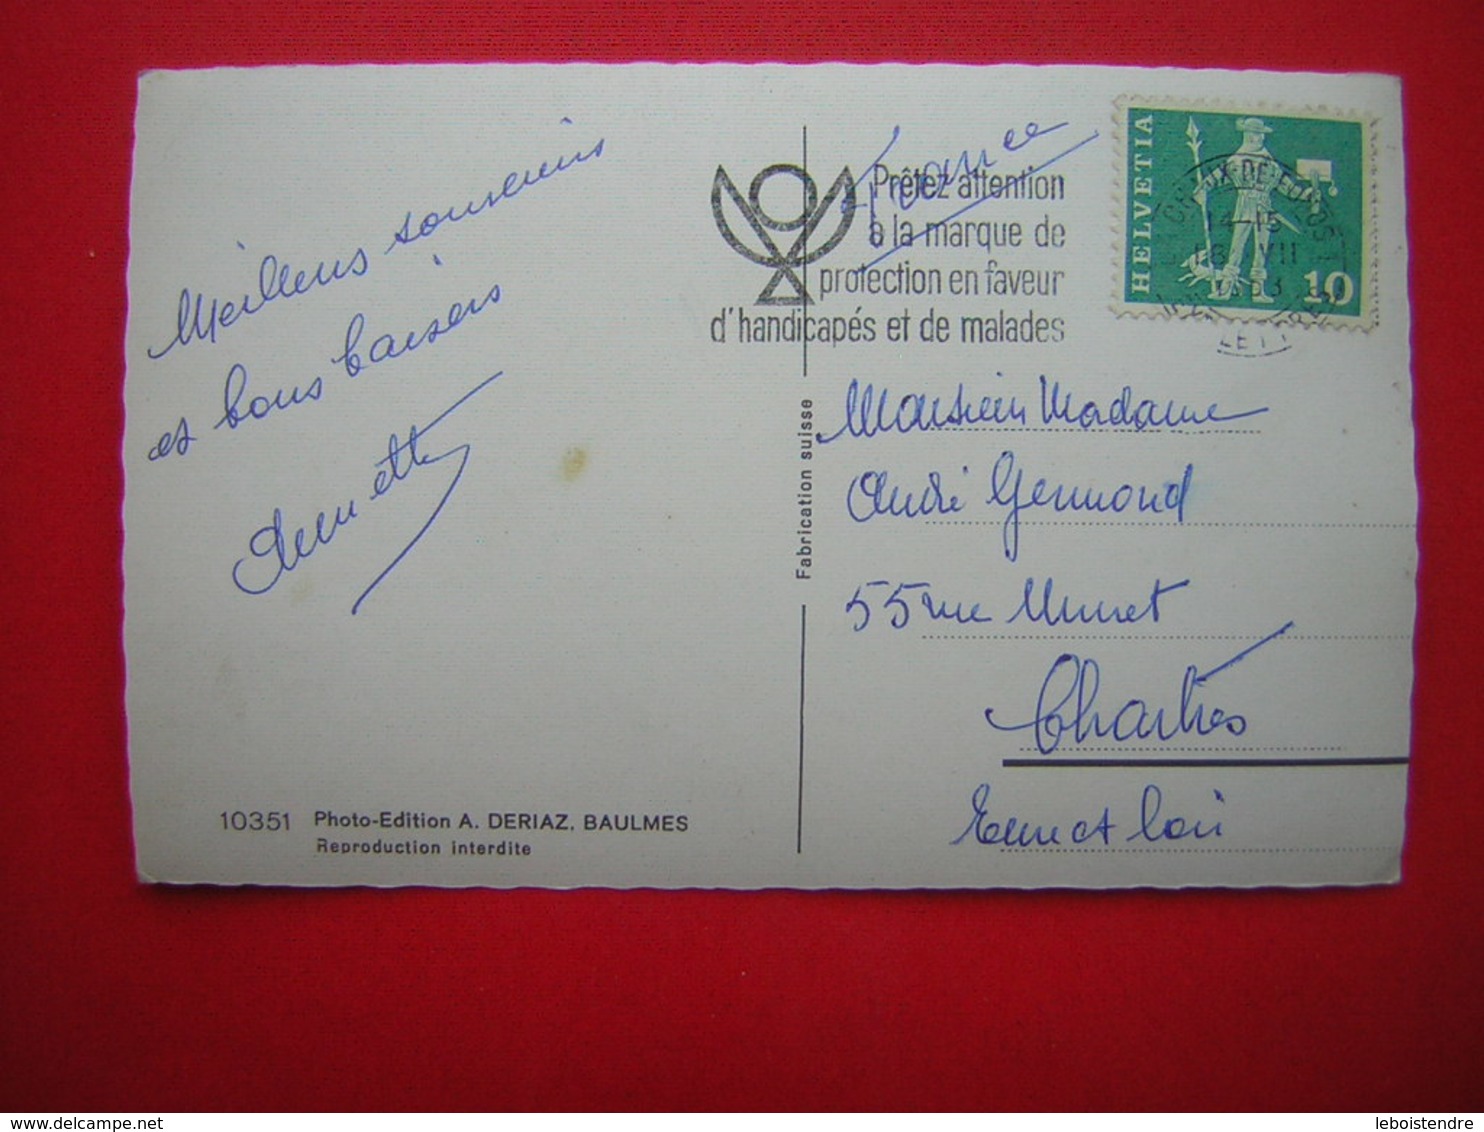 Meilleurs souvenirs
et bons baisers
Annette
10351 Photo-Edition A. DERIAZ, BAULMES
Reproduction interdite
Fabrication suisse
France
Prêtez attention
à la marque de
protection en faveur
d'handicapés et de malades
HELVETIA
10
14-15
VII
Monsieur Madame
André Germond
55 rue Muret
Chartres
Eure et Loir
delcampe.net
leboistendre